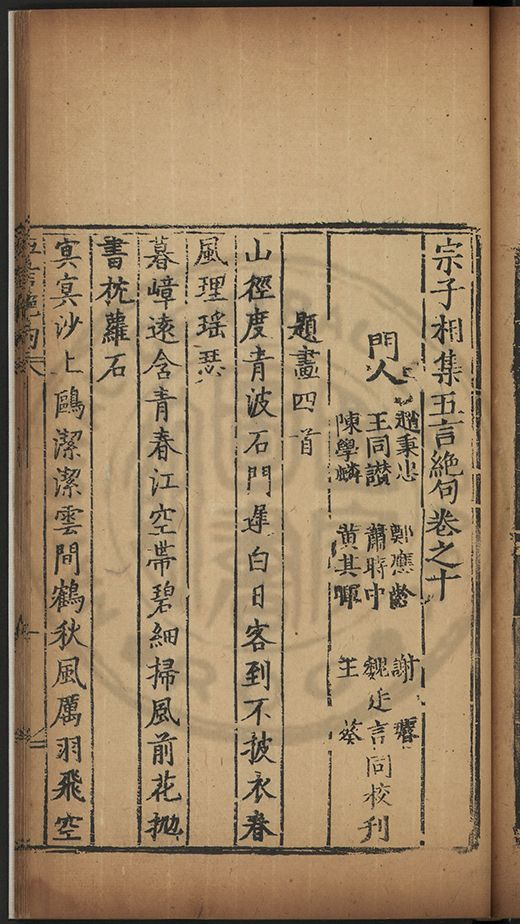 宗子相集五言絕句卷之十
趙秉忠 鄭應齡 謝
門人 王同讃 蕭時中 魏廷言 同校刊
陳學麟 黃其暉 王葵
題畫四首
山徑度青波石門遲白日客到不披衣春
風理瑶瑟
暮嶂遠含青春江空帶碧細掃風前花抛
書枕蘿石
冥冥沙上鷗潔潔雲間鶴秋風厲羽飛空